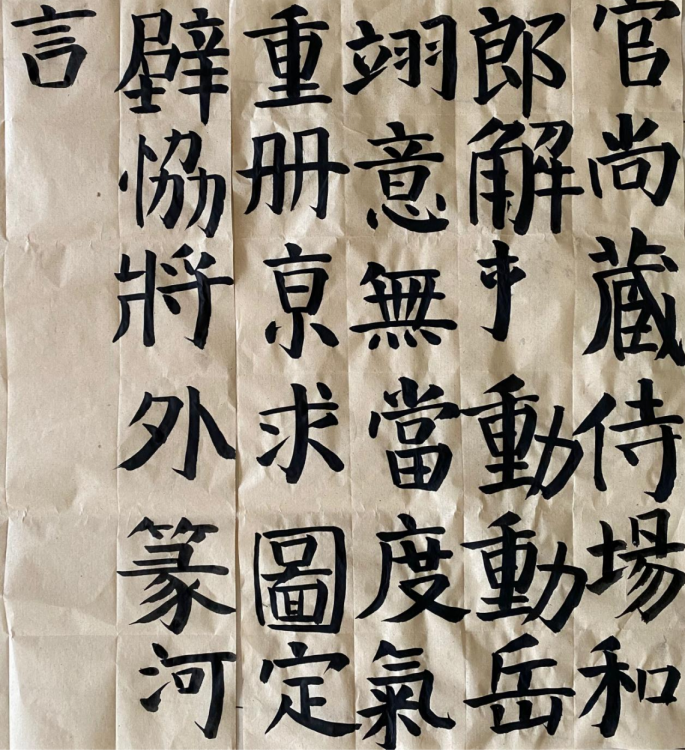 官尚蔵侍場和
郎解動動岳
翊意無當度氣
重册亰求圖定
壁恊將外篆河
言